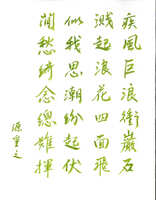 疾風巨浪衝巖石
濺起浪花四面飛
似我思潮紛起伏
閒愁綺念總難揮
源重之